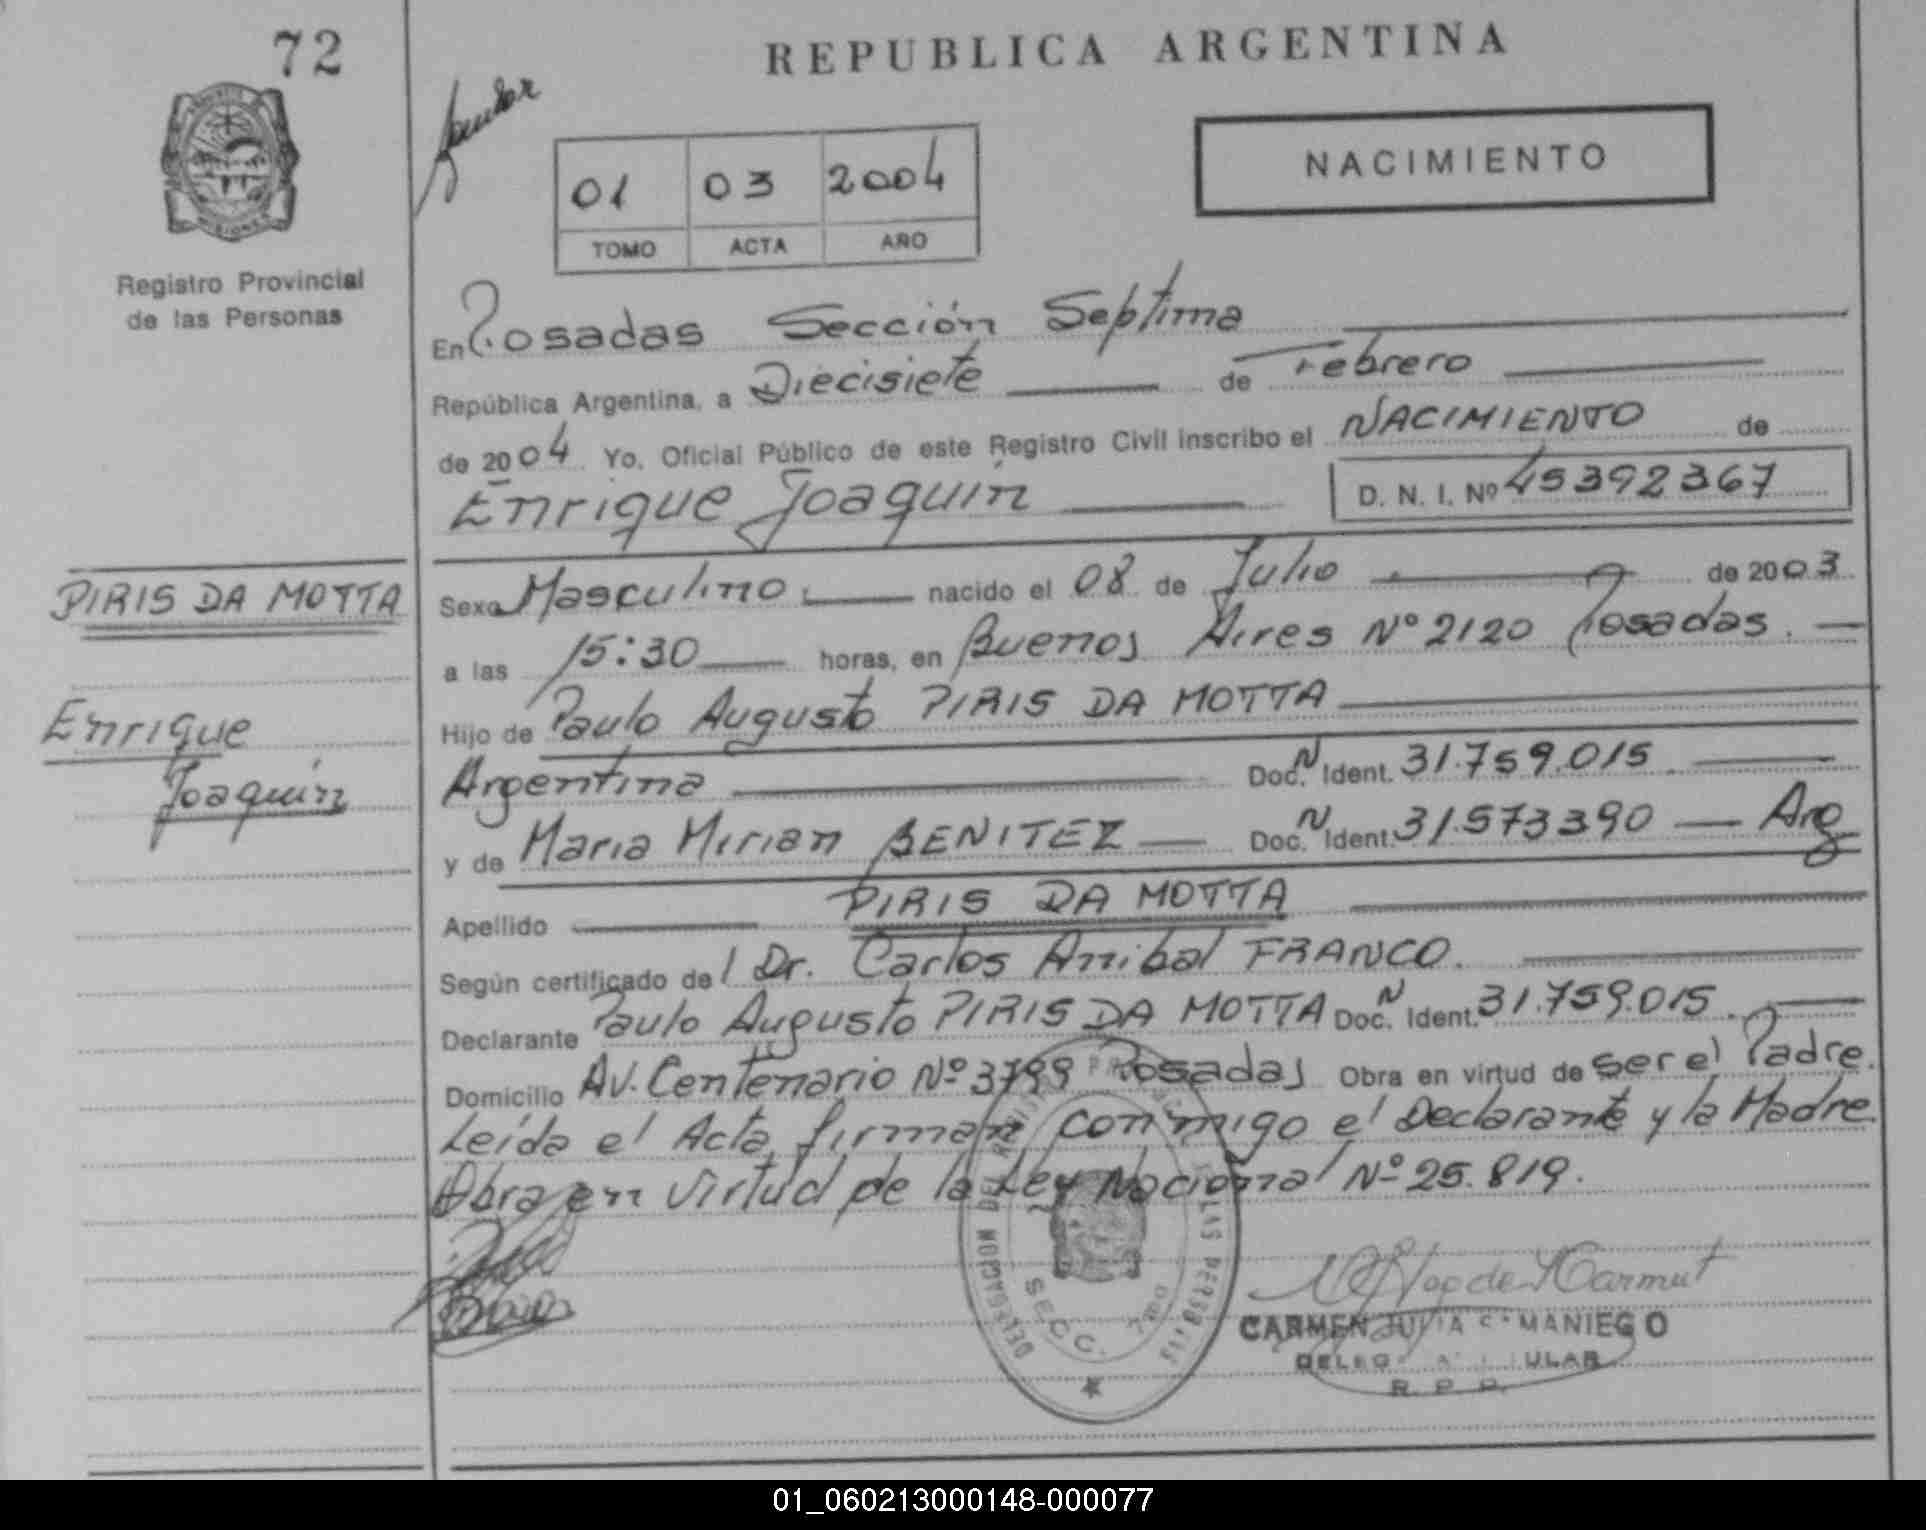 72
REPUBLICA ARGENTINA
NACIMIENTO
01 03 2004
TOMO ACTA AÑO
Registro Provincial
de las Personas
En Posadas Sección Septima
República Argentina, a Diecisiete de Febrero
de 2004 Yo, Oficial Público de este Registro Civil inscribo el NACIMIENTO de
Enrique Joaquín D. N. I. Nº 45392367
PIRIS DA MOTTA
Enrique
Joaquín
Sexo Masculino. nacido el 08 de Julio de 2003
a las 15:30 horas, en Buenos Aires Nº 2120 Posadas.
Hijo de Paulo Augusto PIRIS DA MOTTA
Argentina Doc. N Ident. 31.759.015
y de Maria Mirian BENITEZ Doc. N Ident. 31.573390 Arg
Apellido PIRIS DA MOTTA
Según certificado del Dr. Carlos Anibal FRANCO.
Declarante Paulo Augusto PIRIS DA MOTTA Doc. N Ident. 31.759.015.
Domicilio AV. Centenario Nº 3799 Posadas Obra en virtud de ser el Padre.
Leída el Acta, firman conmigo el Declarante y la Madre.
Obra en virtud de la Ley Nacional Nº 25.819.
SECC. 7
CARMEN JULIA MANIEGO
R. P. P.
01_060213000148-000077